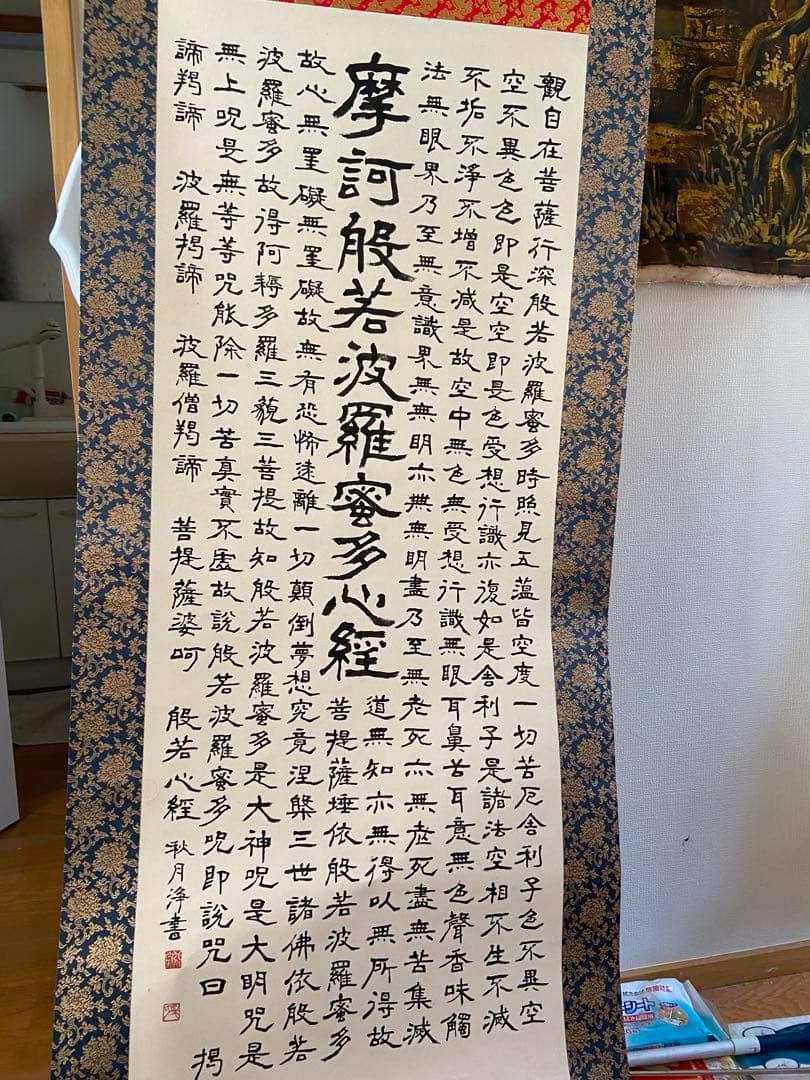 觀自在菩薩行深般若波羅蜜多時照見五蘊皆空度一切苦厄舍利子色不異空
空不異色色即是空空即是色受想行識亦復如是舍利子是諸法空相不生不滅
不垢不淨不增不減是故空中無色無受想行識無眼耳鼻舌耳意無色聲香味觸
法無眼界乃至無意識界無無明亦無無明盡乃至無老死亦無老死盡無苦集滅
摩訶般若波羅蜜多心經
道無知亦無得以無所得故
菩提薩埵依般若波羅蜜多
故心無罣礙無罣礙故無有恐怖遠離一切顛倒夢想究竟涅槃三世諸佛依般若
波羅蜜多故得阿耨多羅三藐三菩提故知般若波羅蜜多是大神呪是大明呪是
無上呪是無等等呪能除一切苦真實不虛故說般若波羅蜜多呪即說呪曰 揭
諦羯諦 波羅揭諦 波羅僧羯諦 菩提薩婆呵 般若心經 秋月淨書